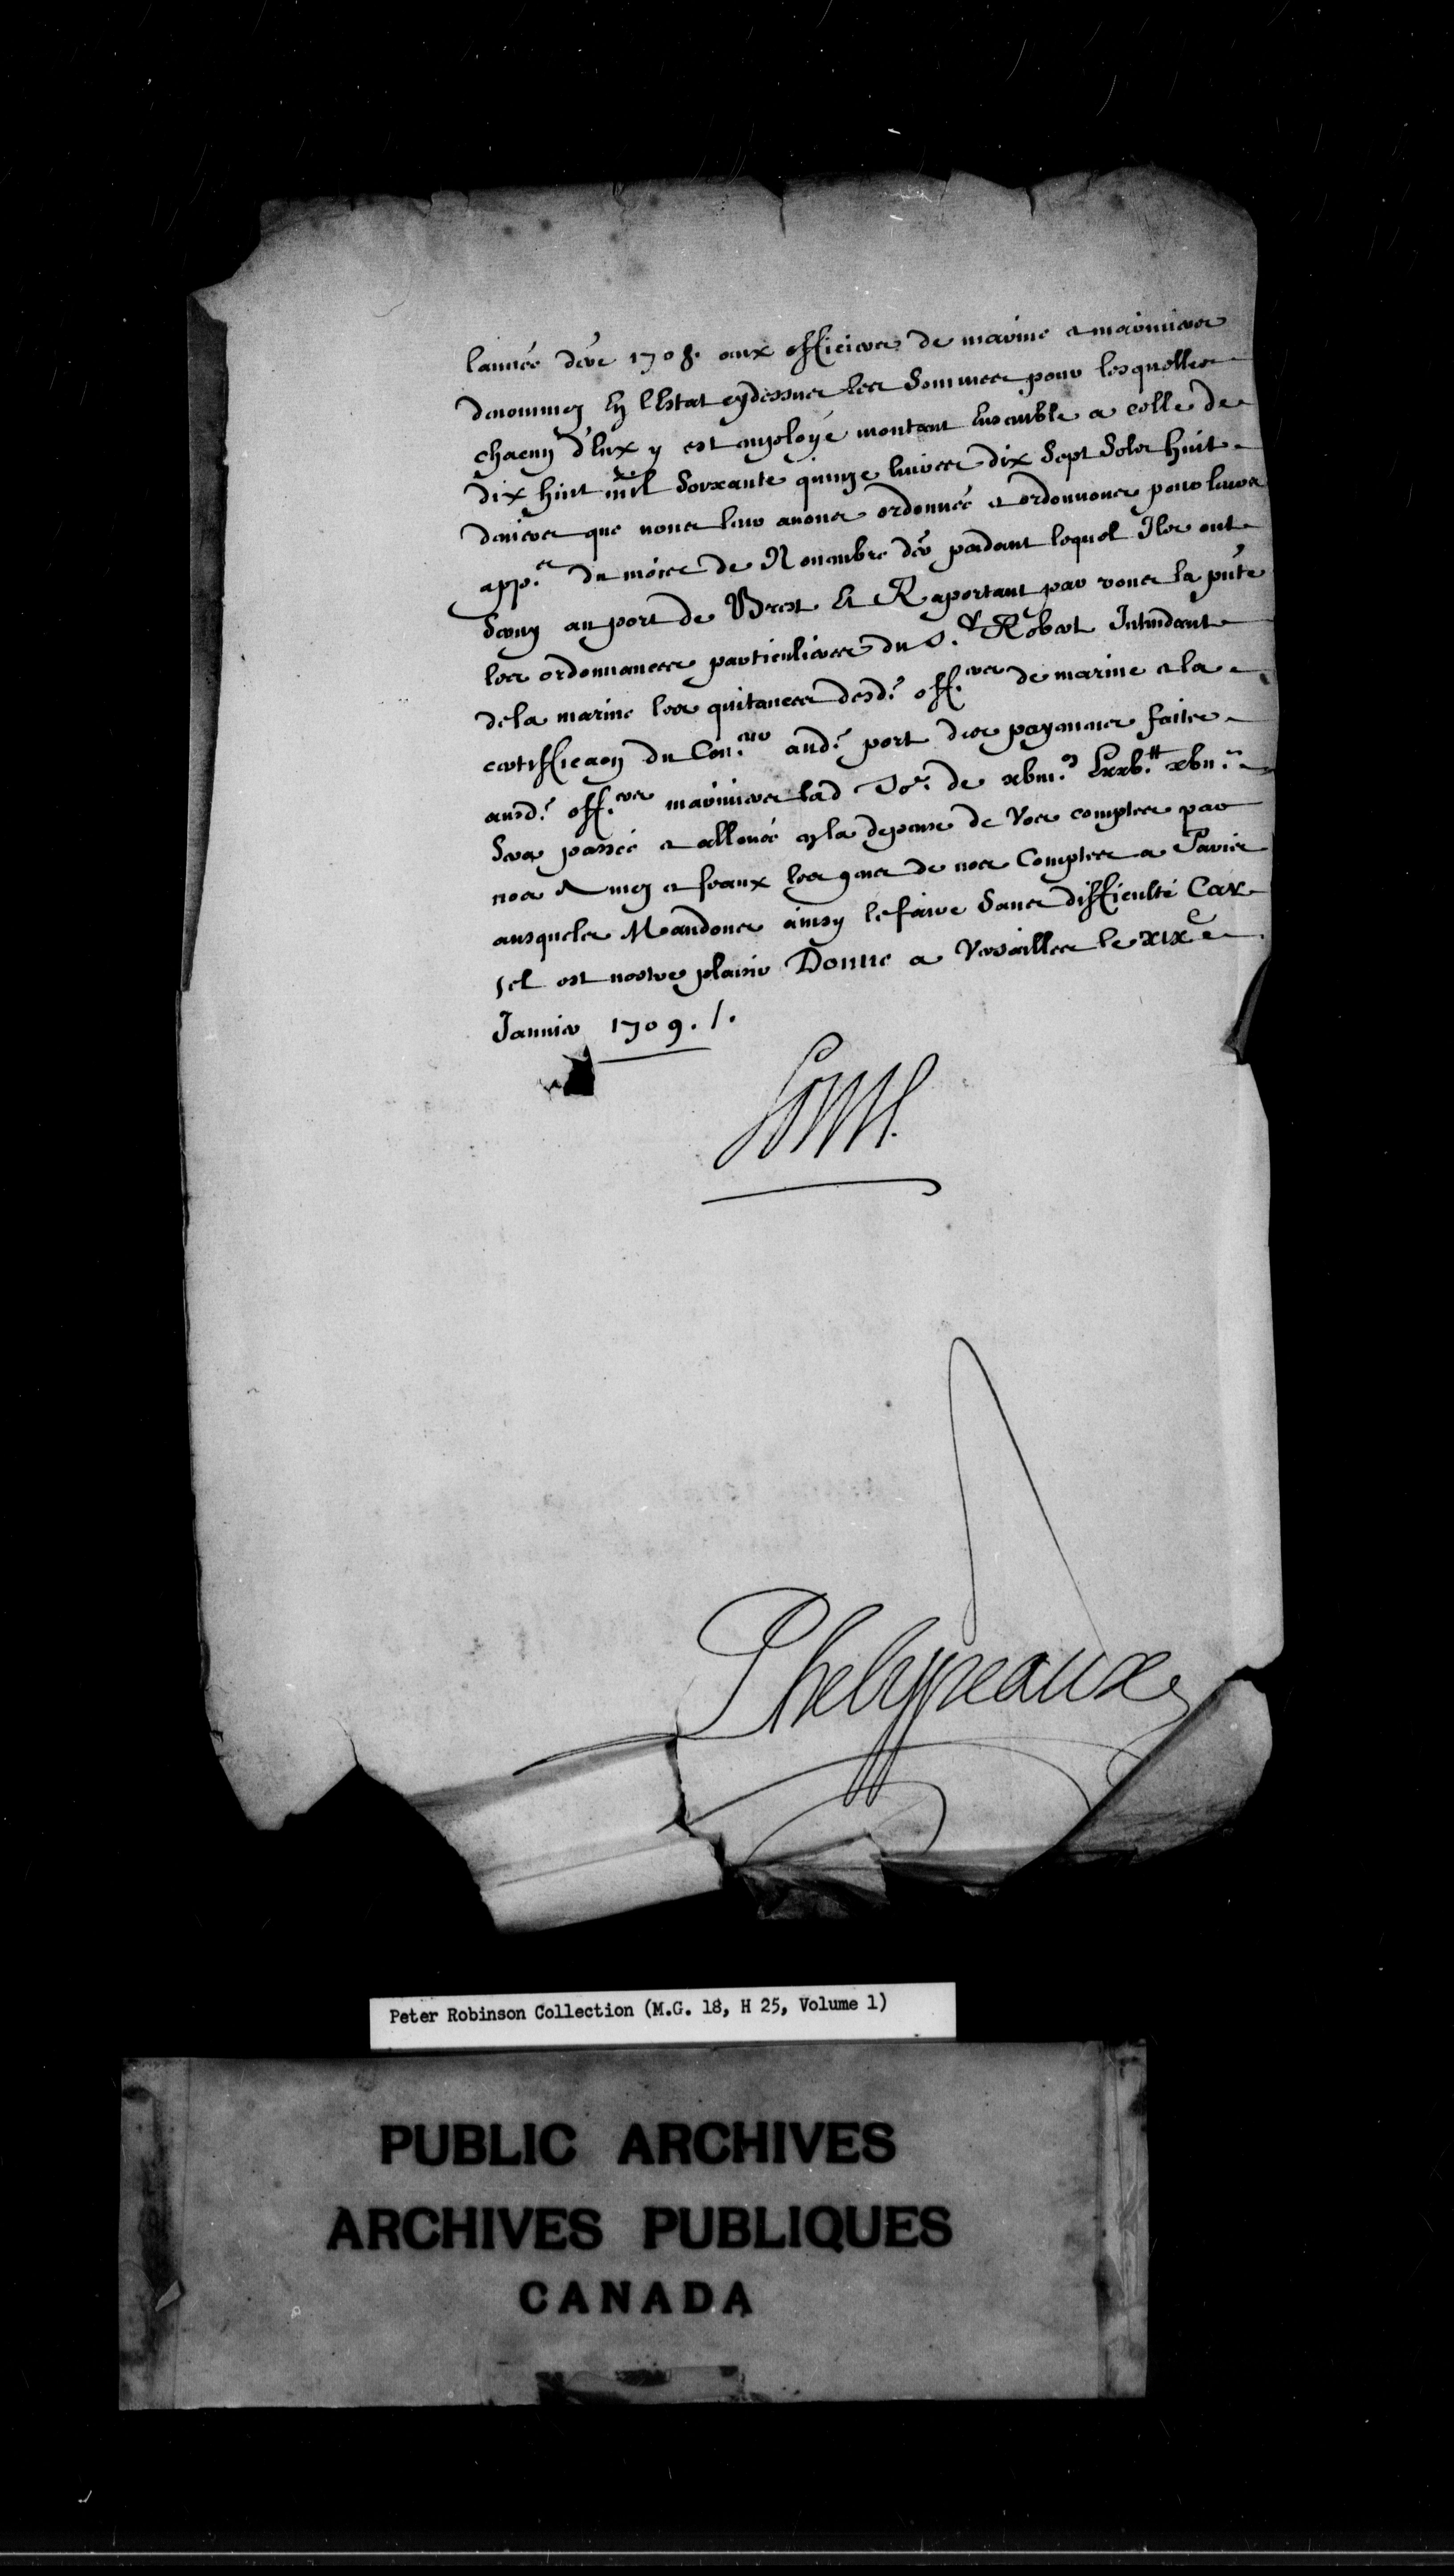 l'année der.e 1708. aux officiers de marine et mariniers
denommez En l'Estat cydessus les Sommes pour lesquelles
chacun d'Eux y est employé montant Ensemble a celle de
dix huit mil Soixante quinze livres dix Sept Sols huit
deniers que nous leur avons ordonnée et ordonnons pour leurs
app.s du mois de Novembre der pendant lequel Ils ont
Servy au port de Brest Et Raportant par vous la pnte
les ordonnances particulieres du S.r Robert Intendant
de la marine les quitances desd. off.ers de marine et la
certifficaon du Con.eur aud. port des payemens faits
ausd. off.ers mariniers lad So.e de xviii.m Lxxv.tt xvii.s
Sera passée et allouée en la depense de Vos comptes par
nos Amez et feaux les gens de nos Comptes a Paris
ausquels Mandons ainsy le faire Sans difficulté Car
tel est nostre plaisir Donné a Versailles le xixe
Janvier 1709. /.
Louis.
Phelypeaux
Peter Robinson Collection (M.G. 18, H 25, Volume 1)
PUBLIC ARCHIVES
ARCHIVES PUBLIQUES
CANADA